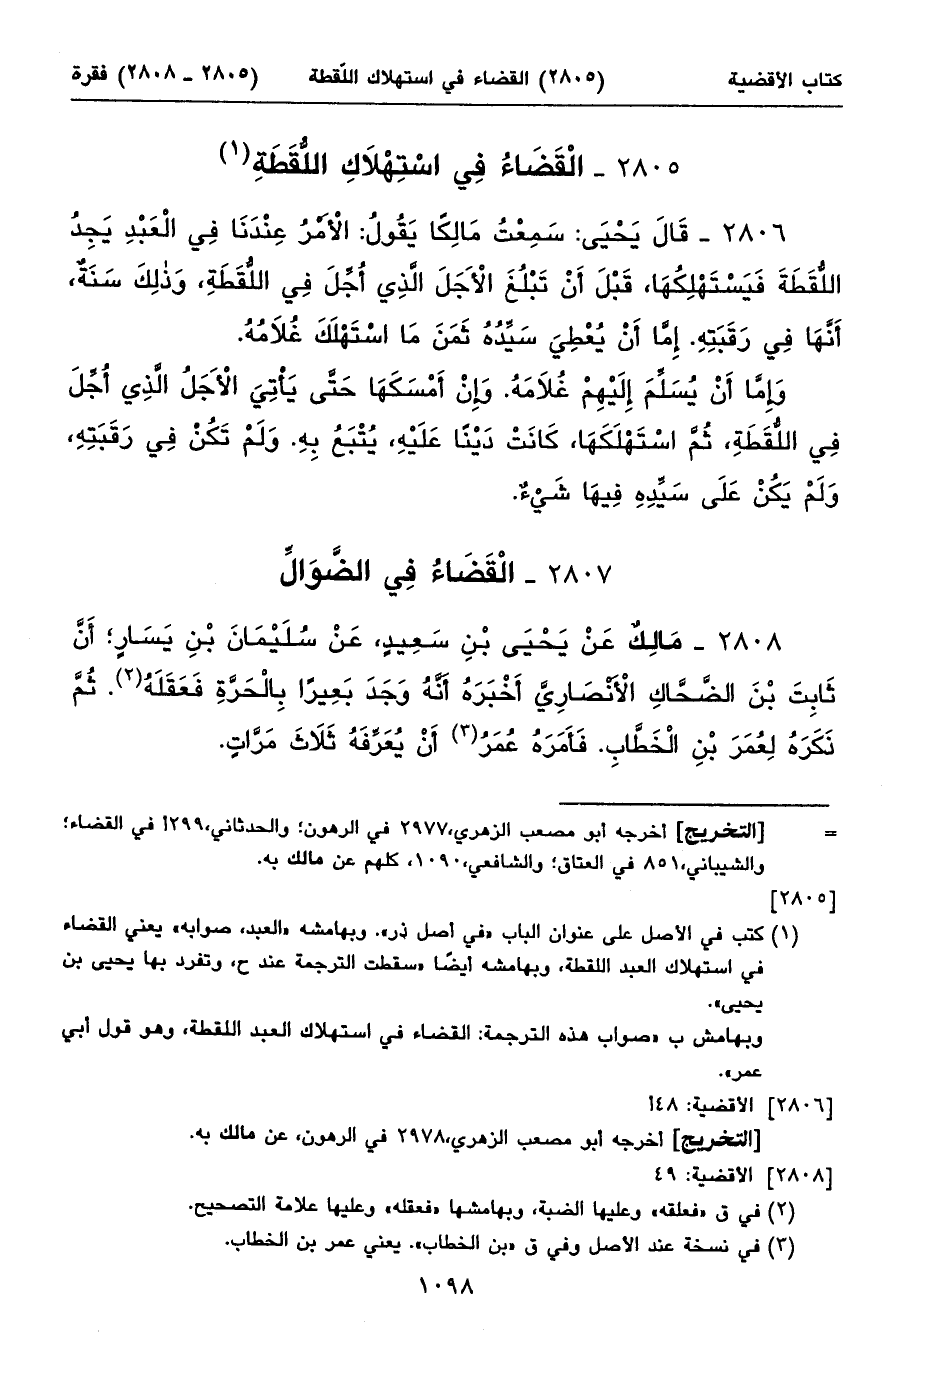 كتاب الأقضية (٢٨٠٥) القضاء في استهلاك اللّقطة (٢٨٠٥ - ٢٨٠٨) فقرة
٢٨٠٥ - الْقَضَاءُ فِي اسْتِهْلَاكِ اللُّقَطَةِ(١)
٢٨٠٦ - قَالَ يَحْيَى: سَمِعْتُ مَالِكًا يَقُولُ: الْأَمْرُ عِنْدَنَا فِي الْعَبْدِ يَجِدُ
اللُّقَطَةَ فَيَسْتَهْلِكُهَا، قَبْلَ أَنْ تَبْلُغَ الْأَجَلَ الَّذِي أُجِّلَ فِي اللُّقَطَةِ، وَذٰلِكَ سَنَةٌ،
أَنَّهَا فِي رَقَبَتِهِ. إِمَّا أَنْ يُعْطِيَ سَيِّدُهُ ثَمَنَ مَا اسْتَهْلَكَ غُلَامُهُ.
وَإِمَّا أَنْ يُسَلِّمَ إِلَيْهِمْ غُلَامَهُ. وَإِنْ أَمْسَكَهَا حَتَّى يَأْتِيَ الْأَجَلُ الَّذِي أُجِّلَ
فِي اللُّقَطَةِ، ثُمَّ اسْتَهْلَكَهَا، كَانَتْ دَيْنًا عَلَيْهِ، يُتْبَعُ بِهِ. وَلَمْ تَكُنْ فِي رَقَبَتِهِ،
وَلَمْ يَكُنْ عَلَى سَيِّدِهِ فِيهَا شَيْءٌ.
٢٨٠٧ - الْقَضَاءُ فِي الضَّوَالِّ
٢٨٠٨ - مَالِكٌ عَنْ يَحْيَى بْنِ سَعِيدٍ، عَنْ سُلَيْمَانَ بْنِ يَسَارٍ؛ أَنَّ
ثَابِتَ بْنَ الضَّحَّاكِ الْأَنْصَارِيَّ أَخْبَرَهُ أَنَّهُ وَجَدَ بَعِيرًا بِالْحَرَّةِ فَعَقَلَهُ(٢). ثُمَّ
ذَكَرَهُ لِعُمَرَ بْنِ الْخَطَّابِ. فَأَمَرَهُ عُمَرُ(٣) أَنْ يُعَرِّفَهُ ثَلَاثَ مَرَّاتٍ.
= [التخريج] أخرجه أبو مصعب الزهري،٢٩٧٧ في الرهون؛ والحدثاني،٢٩٩أ في القضاء؛
والشيباني،٨٥١ في العتاق؛ والشافعي،١٠٩٠، كلهم عن مالك به.
[٢٨٠٥]
(١) كتب في الأصل على عنوان الباب «في أصل ذر». وبهامشه «العبد، صوابه» يعني القضاء
في استهلاك العبد اللقطة، وبهامشه أيضًا «سقطت الترجمة عند ح، وتفرد بها يحيى بن
يحيى».
وبهامش ب «صواب هذه الترجمة: القضاء في استهلاك العبد اللقطة، وهو قول أبي
عمر».
[٢٨٠٦] الأقضية: ٤٨أ
[التخريج] أخرجه أبو مصعب الزهري،٢٩٧٨ في الرهون، عن مالك به.
[٢٨٠٨] الأقضية: ٤٩
(٢) في ق «فعلقه» وعليها الضبة، وبهامشها «فعقله» وعليها علامة التصحيح.
(٣) في نسخة عند الأصل وفي ق «بن الخطاب». يعني عمر بن الخطاب.
١٠٩٨